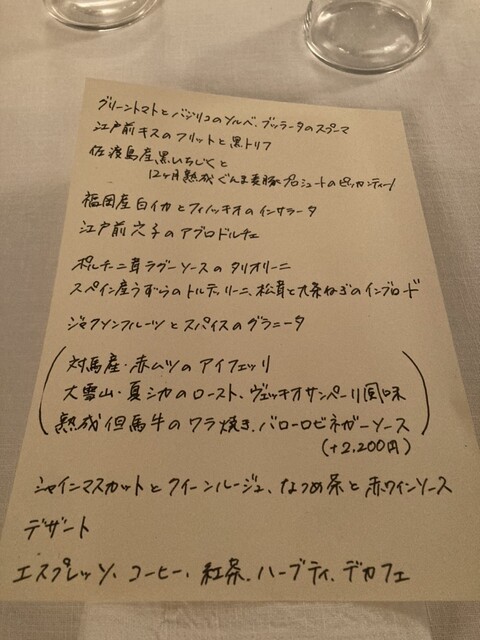 グリーントマトとバジリコのソルベ、ブッラータのスプーマ
江戸前キスのフリットと黒トリフ
佐渡島産黒いちじくと
12ヶ月熟成ぐんま麦豚プロシュートのピッカンティーノ
福岡産白イカとフィノッキオのインサラータ
江戸前穴子のアグロドルチェ
ポルチーニ茸ラグーソースのタリオリーニ
スペイン産うずらのトルテッリーニ、松茸と九条ねぎのインブロード
ジャクソンフルーツとスパイスのグラニータ
対馬産・赤ムツのアイフェッリ
大雪山・夏シカのロースト、ヴェッキオサンペーリ風味
熟成但馬牛のワラ焼き、バローロビネガーソース
(+2,200円)
シャインマスカットとクイーンルージュ、なつめ茶と赤ワインソース
デザート
エスプレッソ、コーヒー、紅茶、ハーブティ、デカフェ